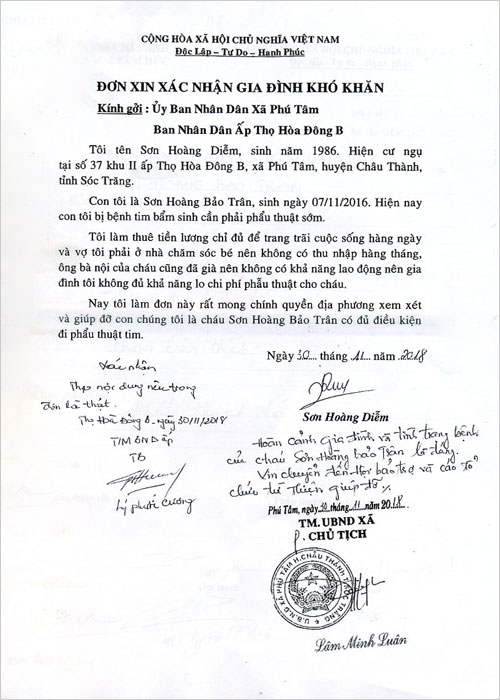 CỘNG HÒA XÃ HỘI CHỦ NGHĨA VIỆT NAM
Độc Lập – Tự Do – Hạnh Phúc
ĐƠN XIN XÁC NHẬN GIA ĐÌNH KHÓ KHĂN
Kính gởi : Ủy Ban Nhân Dân Xã Phú Tâm
Ban Nhân Dân Ấp Thọ Hòa Đông B
Tôi tên Sơn Hoàng Diễm, sinh năm 1986. Hiện cư ngụ
tại số 37 khu II ấp Thọ Hòa Đông B, xã Phú Tâm, huyện Châu Thành,
tỉnh Sóc Trăng.
Con tôi là Sơn Hoàng Bảo Trân, sinh ngày 07/11/2016. Hiện nay
con tôi bị bệnh tim bẩm sinh cần phải phẩu thuật sớm.
Tôi làm thuê tiền lương chỉ đủ để trang trãi cuộc sống hàng ngày
và vợ tôi phải ở nhà chăm sóc bé nên không có thu nhập hàng tháng,
ông bà nội của cháu cũng đã già nên không có khả năng lao động nên gia
đình tôi không đủ khả năng lo chi phí phẫu thuật cho cháu.
Nay tôi làm đơn này rất mong chính quyền địa phương xem xét
và giúp đỡ con chúng tôi là cháu Sơn Hoàng Bảo Trân có đủ điều kiện
đi phẩu thuật tim.
Ngày 30 tháng 11 năm 2018
Sơn Hoàng Diễm
Xác nhận
nội dung nêu trong
đơn là thật.
Thọ Hòa Đông B, ngày 30/11/2018
TM BND ấp
TB
Lý Phước Cường
Hoàn cảnh gia đình và tình trạng bệnh
của cháu Sơn Hoàng Bảo Trân là đúng.
chuyển đến Hội bảo trợ và các tổ
chức từ thiện giúp đỡ
Phú Tâm, ngày 30 tháng 11 năm 2018
TM. UBND XÃ
P. CHỦ TỊCH
U.B.N.D XÃ PHÚ TÂM H. CHÂU THÀNH T. SÓC TRĂNG
Lâm Minh Luân